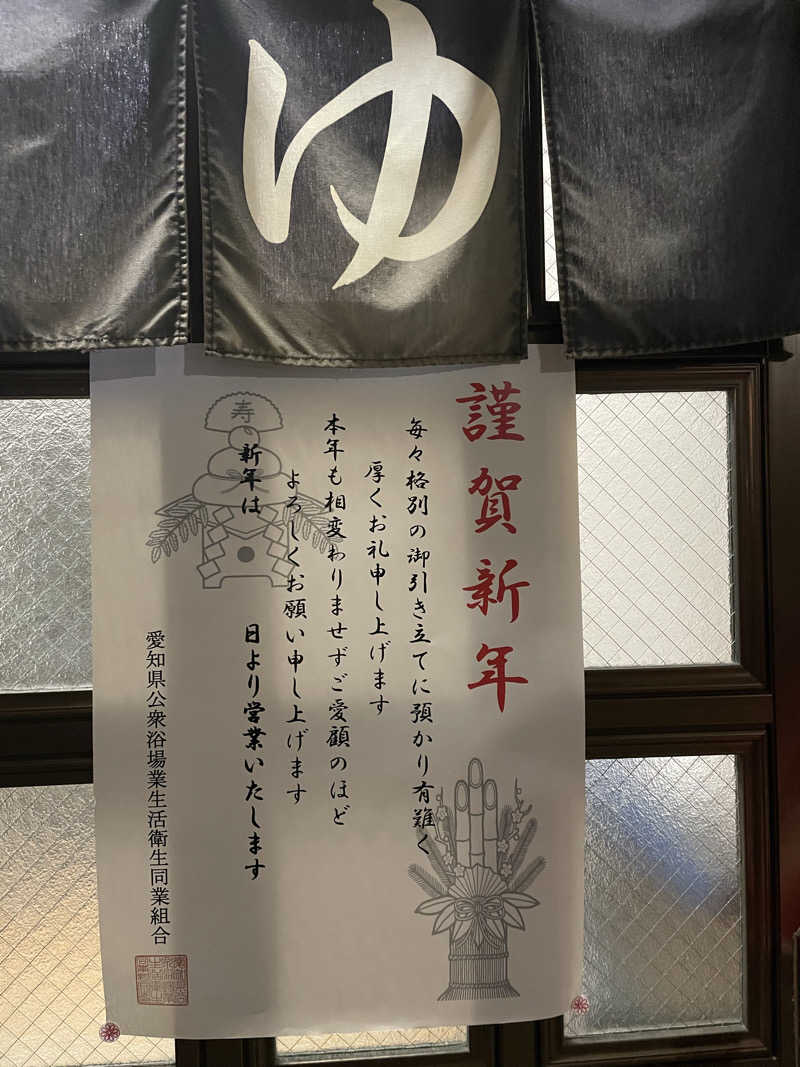 ゆ
謹賀新年
毎々格別の御引き立てに預かり有難く
厚くお礼申し上げます
本年も相変わりませずご愛顧のほど
よろしくお願い申し上げます
新年は 日より営業いたします
愛知県公衆浴場業生活衛生同業組合
寿